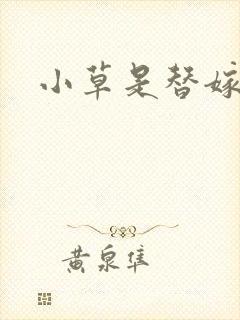 小草是替嫁
黄泉隼